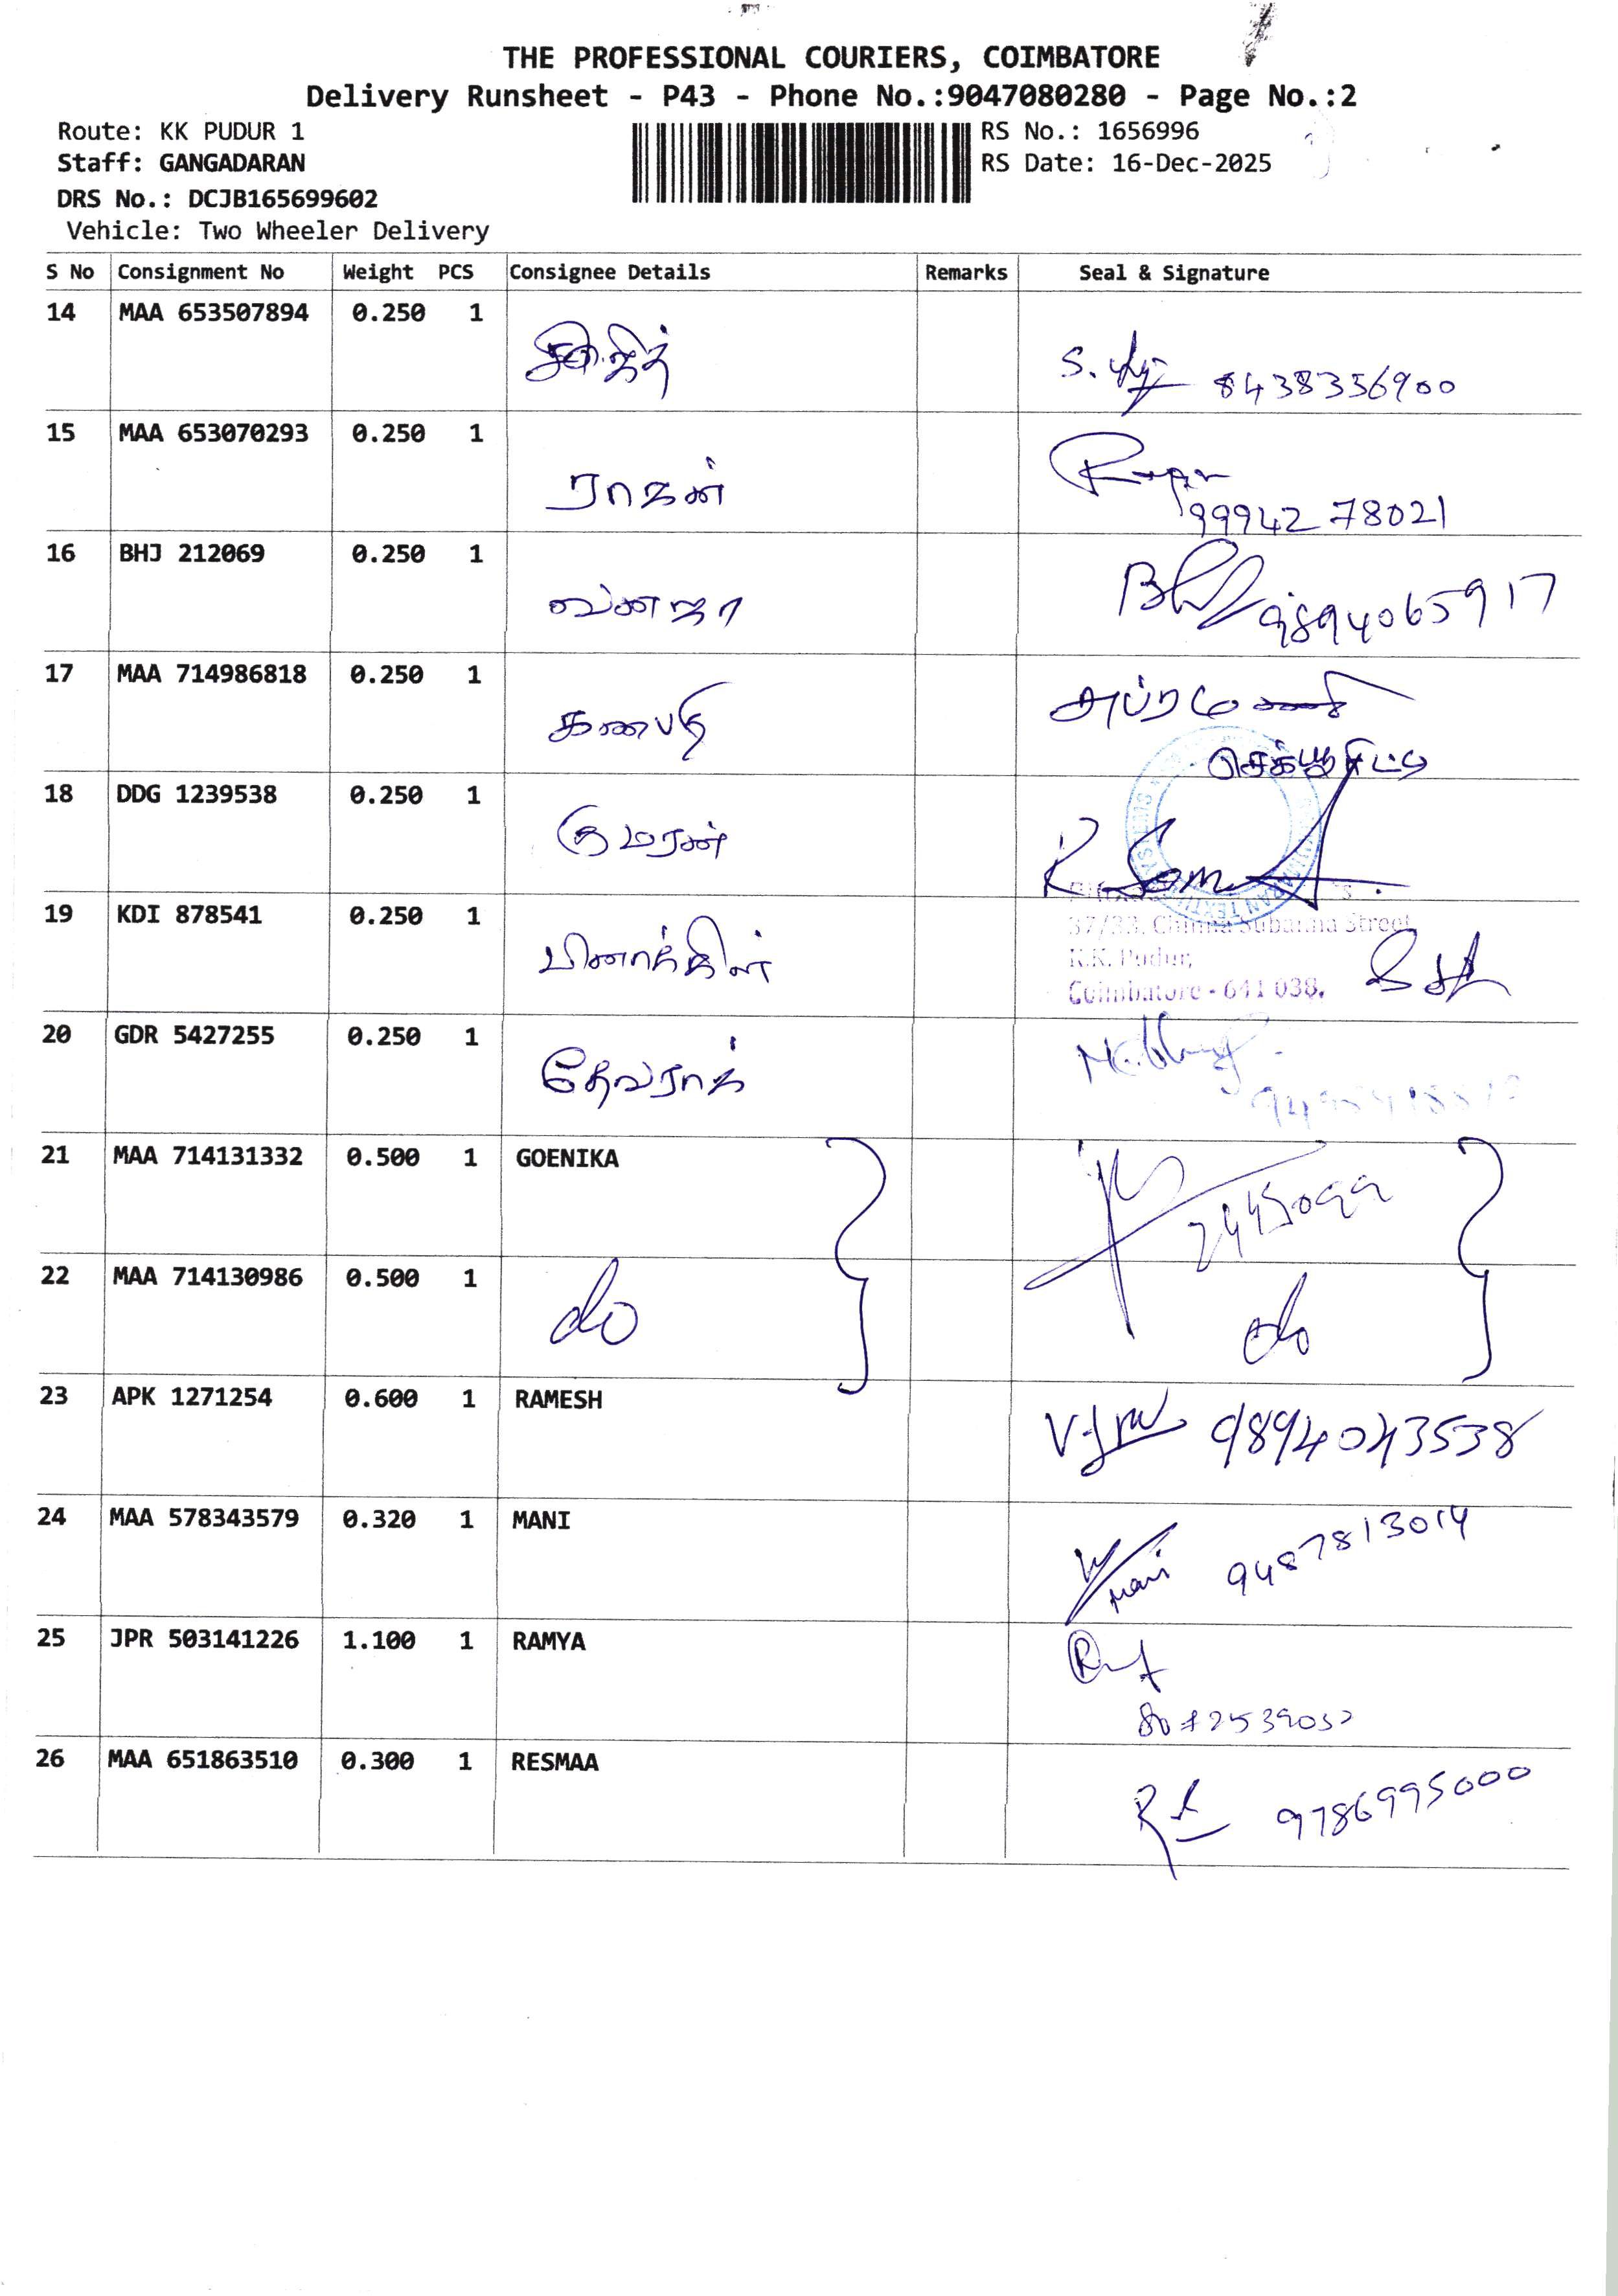 THE PROFESSIONAL COURIERS, COIMBATORE
Delivery Runsheet - P43 - Phone No.:9047080280 - Page No.:2
Route: KK PUDUR 1
RS No.: 1656996
Staff: GANGADARAN
RS Date: 16-Dec-2025
DRS No.: DCJB165699602
Vehicle: Two Wheeler Delivery
S No Consignment No Weight PCS Consignee Details Remarks Seal & Signature
14 MAA 653507894 0.250 1
S. 8438356900
15 MAA 653070293 0.250 1
ராகன்
99942 78021
16 BHJ 212069 0.250 1
வனஜா
9894065917
17 MAA 714986818 0.250 1
கணபதி
செக்யூரிட்டி
18 DDG 1239538 0.250 1
குமரன்
19 KDI 878541 0.250 1
37/33, Chinna Subanna Street
K.K. Pudur,
Coimbatore - 641 038.
20 GDR 5427255 0.250 1
தேவராஜ்
21 MAA 714131332 0.500 1 GOENIKA
2445099
22 MAA 714130986 0.500 1
do do
23 APK 1271254 0.600 1 RAMESH
9894043538
24 MAA 578343579 0.320 1 MANI
mani 9487813014
25 JPR 503141226 1.100 1 RAMYA
26 MAA 651863510 0.300 1 RESMAA
9786995000